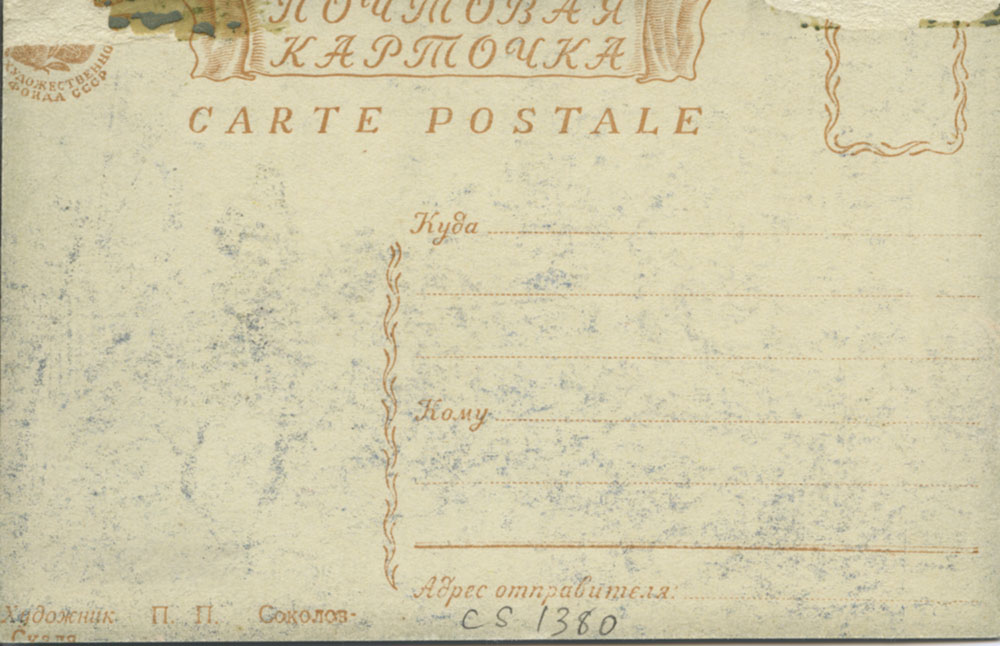 ПОЧТОВАЯ
КАРТОЧКА
ХУДОЖЕСТВЕННО
ФОНДА СССР
CARTE POSTALE
Куда
Кому
Адрес отправителя:
CS 1380
Художник П. П. Соколов-
Скаля